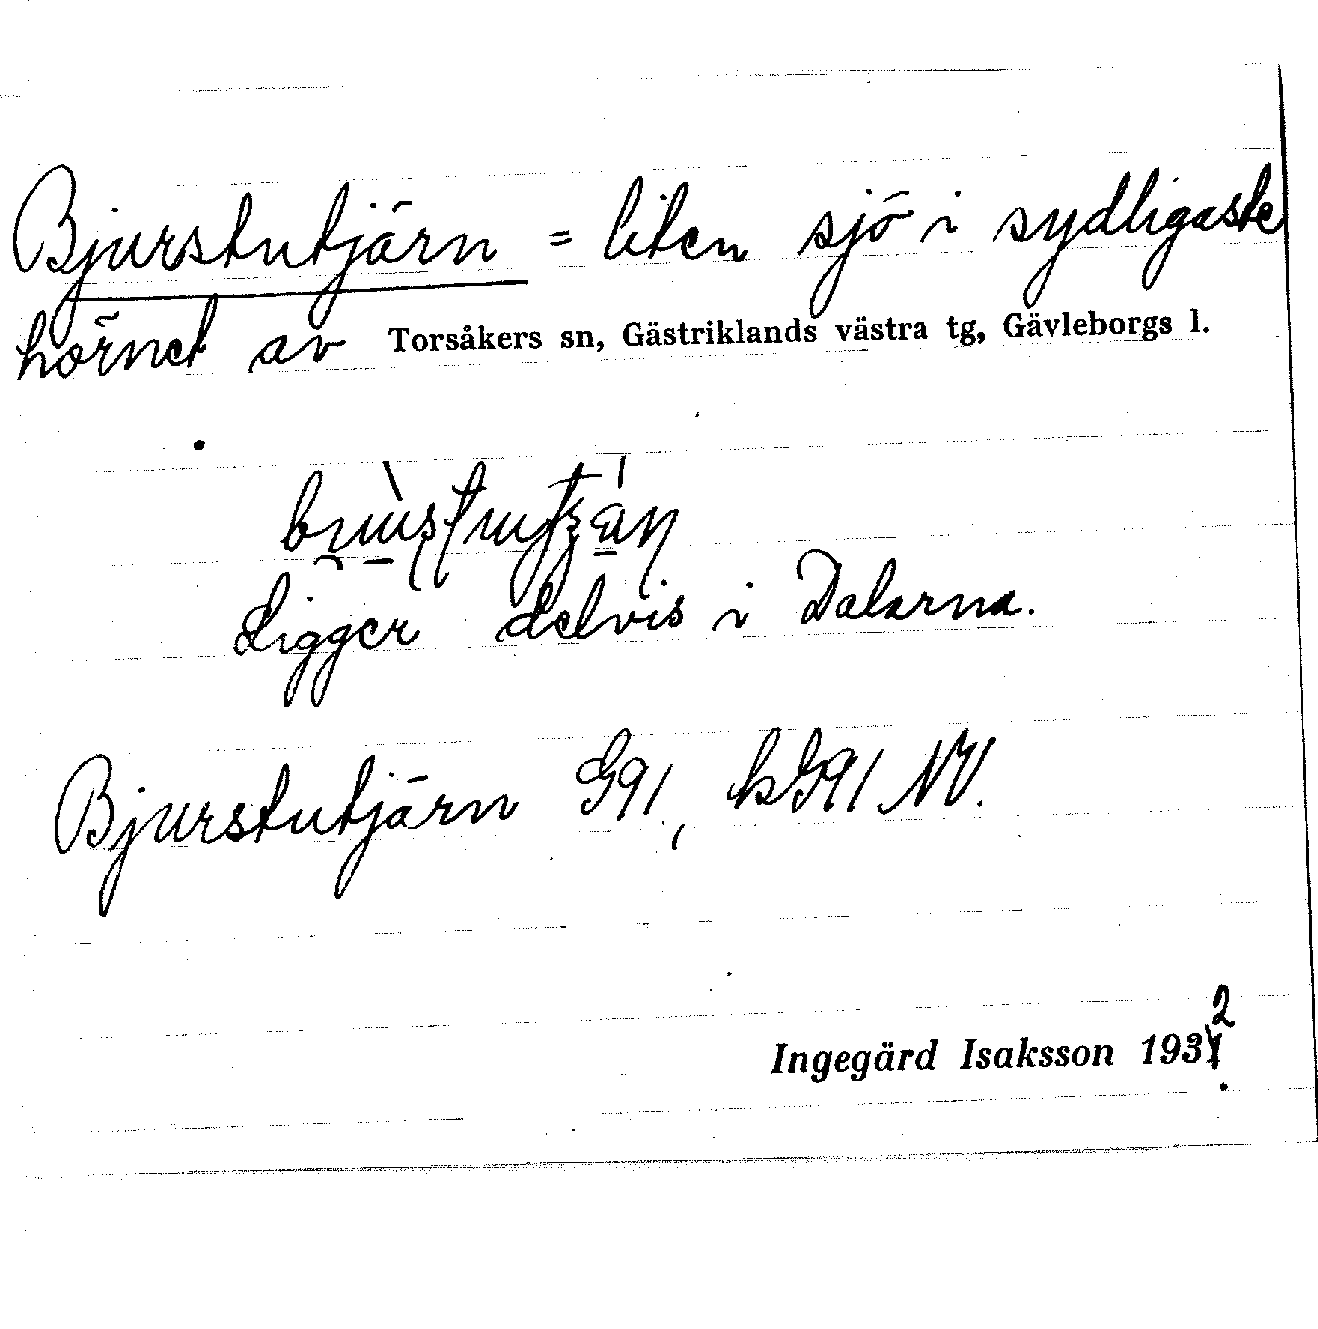 Bjurstutjärn = liten sjö i sydligaste
hörnet av Torsåkers sn, Gästriklands västra tg, Gävleborgs l.
Ligger delvis i Dalarna.
Bjurstutjärn G91, kG91 NV.
2
Ingegärd Isaksson 1931